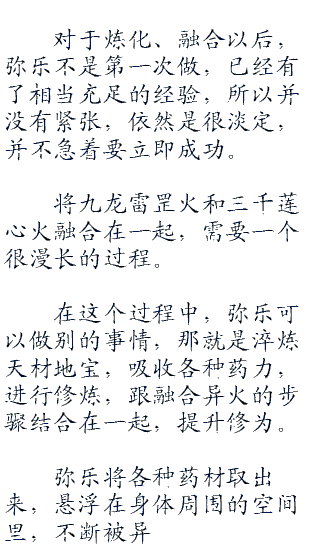 对于炼化、融合以后，
弥乐不是第一次做，已经有
了相当充足的经验，所以并
没有紧张，依然是很淡定，
并不急着要立即成功。
将九龙雷罡火和三千莲
心火融合在一起，需要一个
很漫长的过程。
在这个过程中，弥乐可
以做别的事情，那就是淬炼
天材地宝，吸收各种药力，
进行修炼，跟融合异火的步
骤结合在一起，提升修为。
弥乐将各种药材取出
来，悬浮在身体周围的空间
里，不断被异